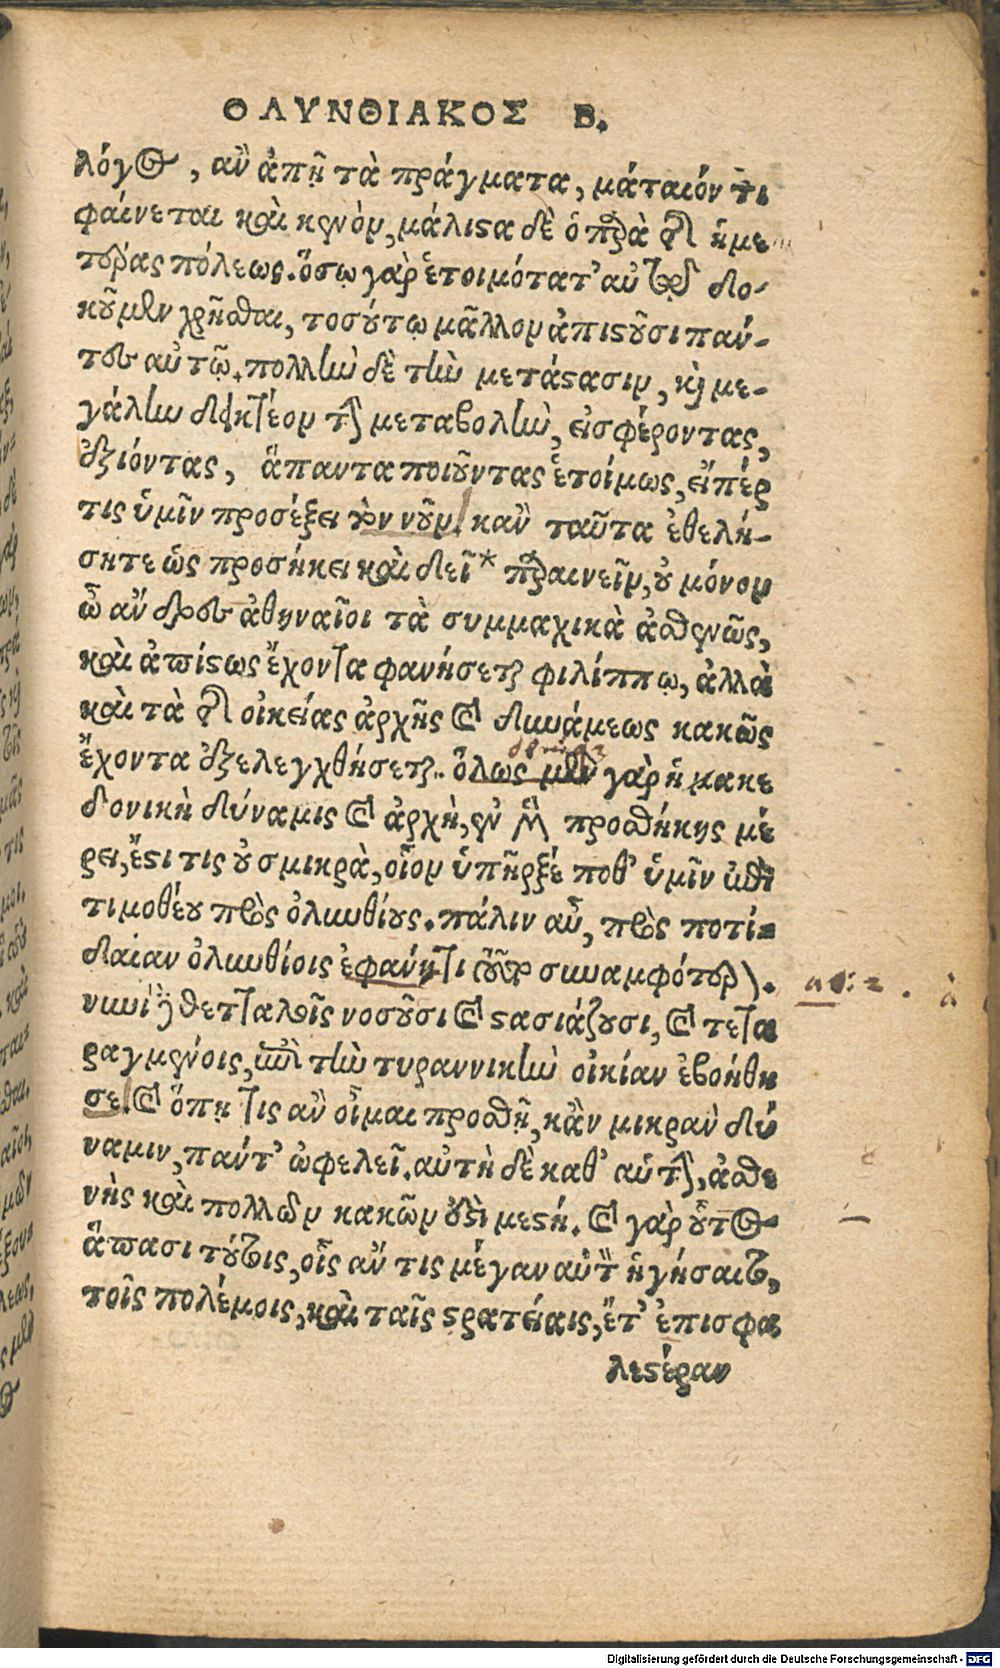 ΟΛΥΝΘΙΑΚΟΣ Β.
λόγος, ἂν ἀπῇ τὰ πράγματα, μάταιόν τι
φαίνεται καὶ κενὸν, μάλιστα δὲ ὁ παρὰ τῆς ἡμε
τέρας πόλεως. ὅσῳ γὰρ ἑτοιμότατ' αὐτῷ δο-
κοῦμεν χρῆσθαι, τοσούτῳ μᾶλλον ἀπιστοῦσι πάν-
τες αὐτῷ. πολλὴν δὲ τὴν μετάστασιν, καὶ με-
γάλην δεικτέον τὴν μεταβολὴν, εἰσφέροντας,
ἐξιόντας, ἅπαντα ποιοῦντας ἑτοίμως, εἴπέρ
τις ὑμῖν προσέξει τὸν νοῦν. κἂν ταῦτα ἐθελή-
σητε ὡς προσήκει καὶ δεῖ* περαίνειν, οὐ μόνον
ὦ ἄνδρες ἀθηναῖοι τὰ συμμαχικὰ ἀσθενῶς,
καὶ ἀπίστως ἔχοντα φανήσεται φιλίππῳ, ἀλλὰ
καὶ τὰ τῆς οἰκείας ἀρχῆς καὶ δυνάμεως κακῶς
ἔχοντα ἐξελεγχθήσεται. ὅλως μὲν γὰρ ἡ μακε
δονικὴ δύναμις καὶ ἀρχὴ, ἐν μὲν προσθήκης μέ
ρει, ἔστι τις οὐ σμικρὰ, οἷον ὑπῆρξέ ποθ' ὑμῖν ἐπὶ
τιμοθέου πρὸς ὀλυνθίους. πάλιν αὖ, πρὸς ποτί-
δαίαν ὀλυνθίοις ἐφάνη τι τοῦτο συναμφότερον.
νυνὶ δὲ θετταλοῖς νοσοῦσι καὶ στασιάζουσι, καὶ τετα
ραγμένοις, ἐπὶ τὴν τυραννικὴν οἰκίαν ἐβοήθη
σε. καὶ ὅπῃ τις ἂν οἶμαι προσθῇ, κἂν μικρὰν δύ
ναμιν, πάντ' ὠφελεῖ. αὐτὴ δὲ καθ' αὑτὴν, ἀσθε
νὴς καὶ πολλῶν κακῶν ἐστὶ μεστή. καὶ γὰρ οὗτος
ἅπασι τούτοις, οἷς ἄν τις μέγαν αὐτὸν ἡγήσαιτο,
τοῖς πολέμοις, καὶ ταῖς στρατείαις, ἔτ' ἐπισφα
λεστέραν
Digitalisierung gefördert durch die Deutsche Forschungsgemeinschaft - DFG